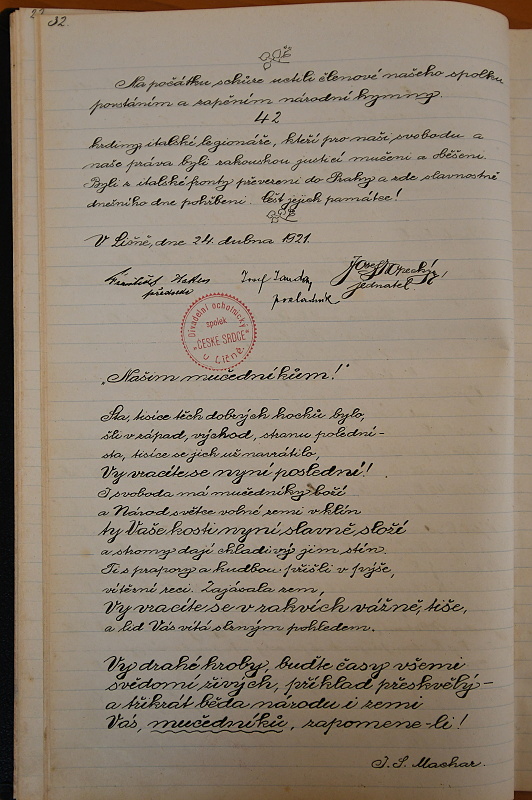 32.
Na počátku schůze uctili členové našeho spolku
povstáním a zapěním národní hymny
42
hrdiny italské legionáře, kteří pro naši svobodu a
naše práva byli rakouskou justicí mučeni a oběšeni.
Byli z italské fronty převezeni do Prahy a zde slavnostně
dnešního dne pohřbeni. Čest jejich památce!
V Líšně, dne 24. dubna 1921.
František
předseda
Josef Janda
pokladník
Josef
jednatel
Divadelní ochotnický
spolek
„ČESKÉ SRDCE"
v Líšně.
„Našim mučedníkům!"
Sta, tisíce těch dobrých hochů bylo,
šli v západ, východ, stranu polední –
sta, tisíce se jich už navrátilo,
Vy vracíte se nyní poslední!
I svoboda má mučedníky boží
a Národ světce volné zemi v klín
ty Vaše kosti nyní slavně složí
a stromy dají chladivý jim stín.
Ti s prapory a hudbou přišli v pýše,
vítězní reci. Zajásala zem,
Vy vracíte se v rakvích vážně, tiše,
a lid Vás vítá slzným pohledem.
Vy drahé hroby, buďte časy všemi
svědomí živých, příklad přeskvělý –
a třikrát běda národu i zemi
Vás, mučedníků, zapomene-li!
J. S. Machar.